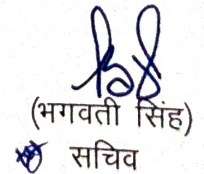 (भगवती सिंह)
सचिव